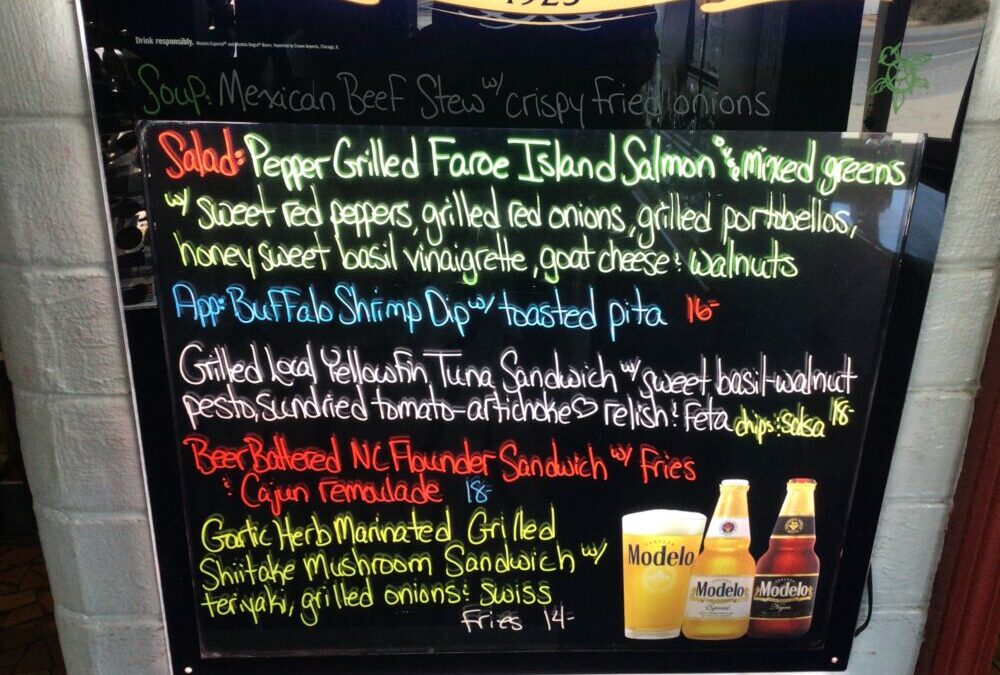 1925
Drink responsibly. Modelo Especial® and Modelo Negra® Beers. Imported by Crown Imports, Chicago, IL
Soup: Mexican Beef Stew w/ crispy fried onions
Salad: Pepper Grilled Faroe Island Salmon & mixed greens
w/ sweet red peppers, grilled red onions, grilled portobellos,
honey sweet basil vinaigrette, goat cheese & walnuts
App: Buffalo Shrimp Dip w/ toasted pita 16-
Grilled Local Yellowfin Tuna Sandwich w/ sweet basil-walnut
pesto, sundried tomato-artichoke♡ relish & Feta chips & Salsa 18-
Beer Battered NC Flounder Sandwich w/ Fries
& Cajun remoulade 18-
Garlic Herb Marinated Grilled
Shiitake Mushroom Sandwich w/
teriyaki, grilled onions & Swiss
Fries 14-
CERVEZA
Modelo
Modelo
Especial
Modelo
Negra